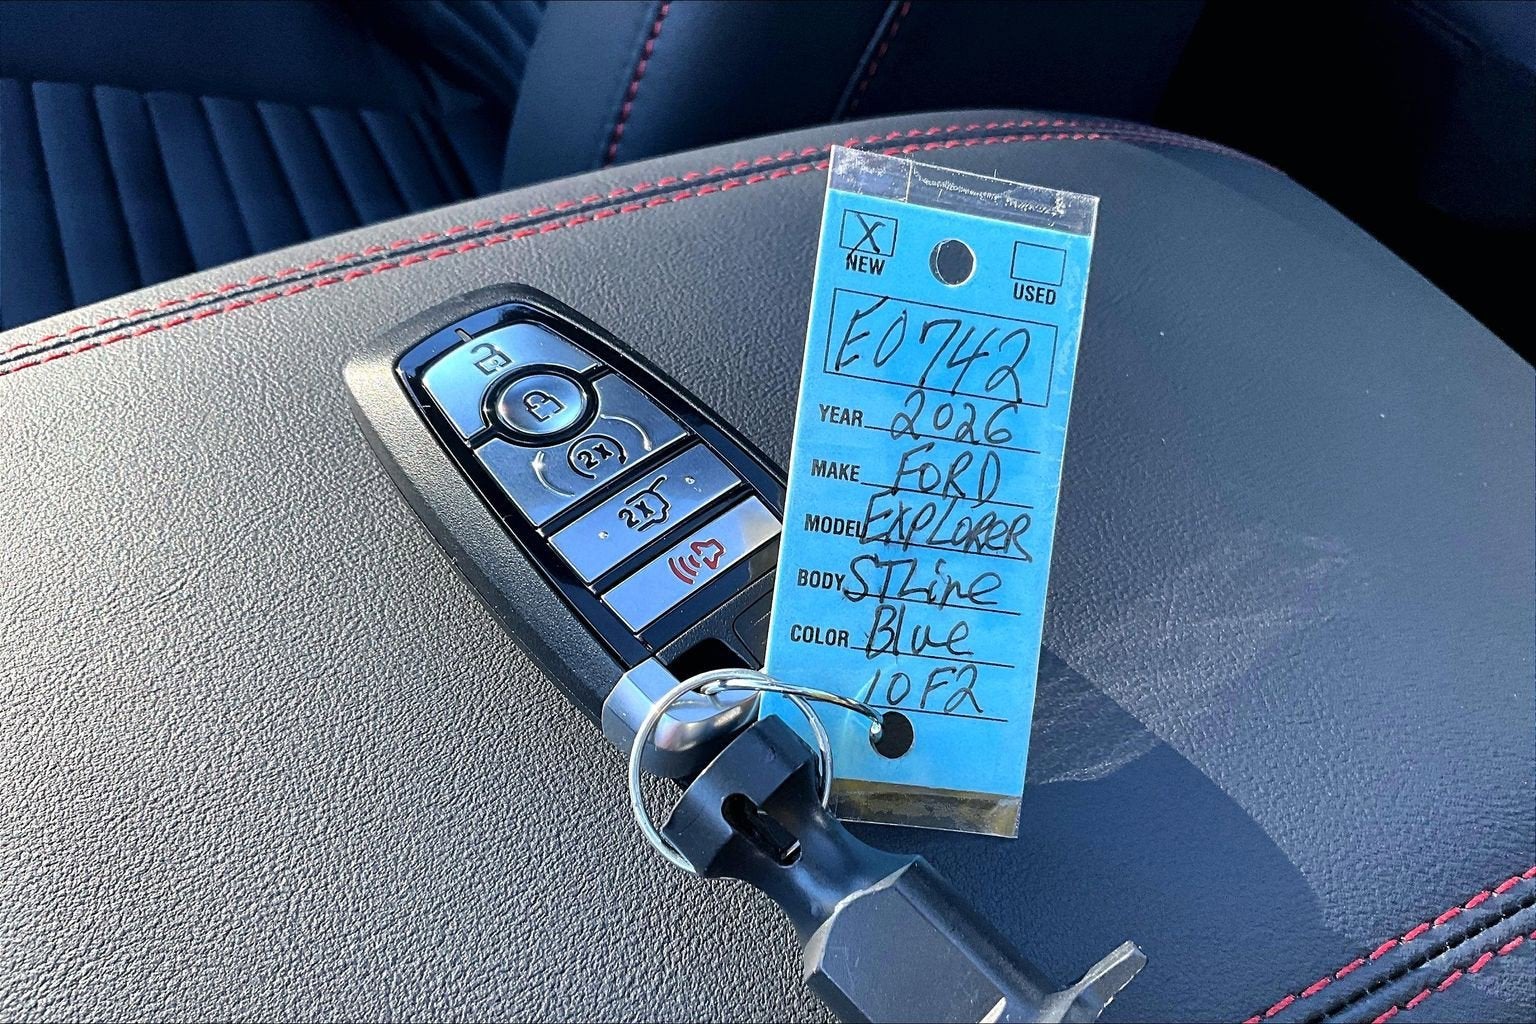 X
NEW
USED
E0742
YEAR 2026
MAKE FORD
MODEL EXPLORER
BODY STLine
COLOR Blue
10F2
2x
2x